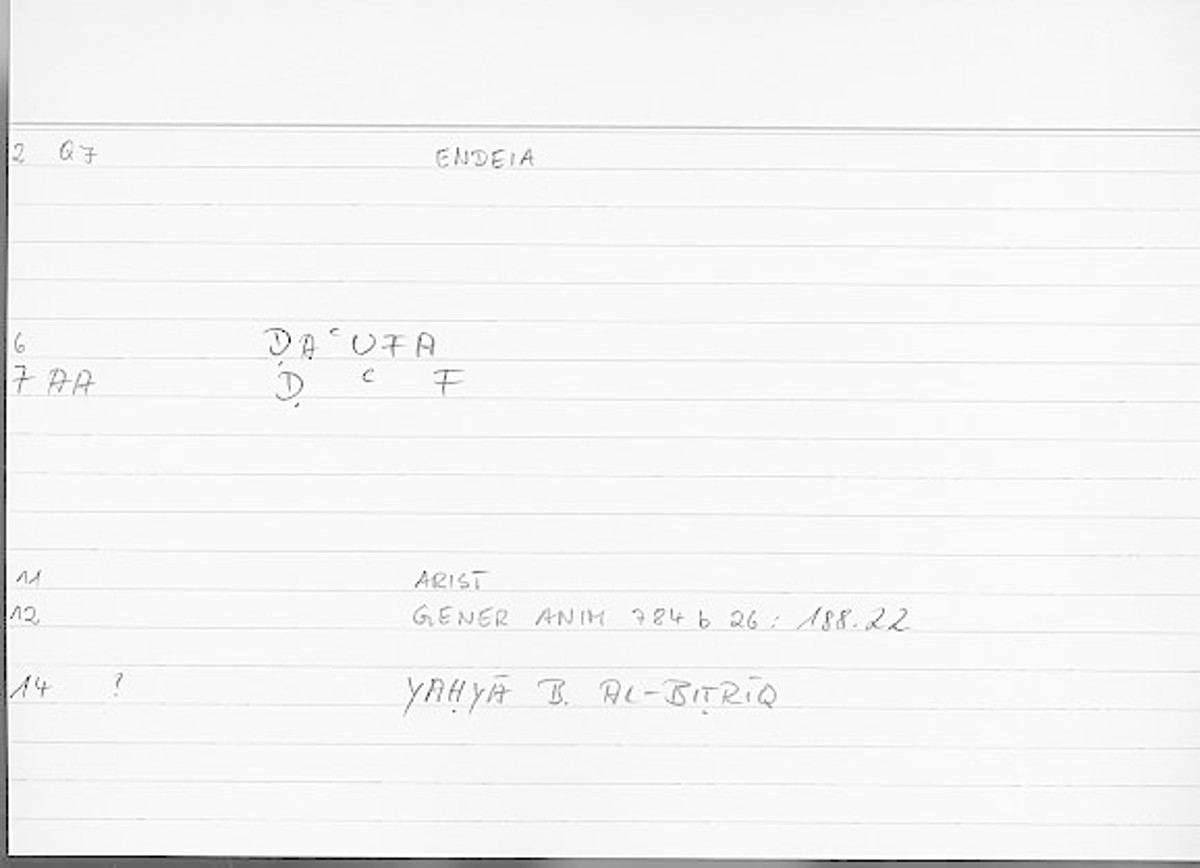 2 Q7 ENDEIA
6 ḌAʿUFA
7 AA Ḍ ʿ F
11 ARIST
12 GENER ANIM 784 b 26: 188.22
14 ? YAḤYĀ B. AL-BIṬRĪQ